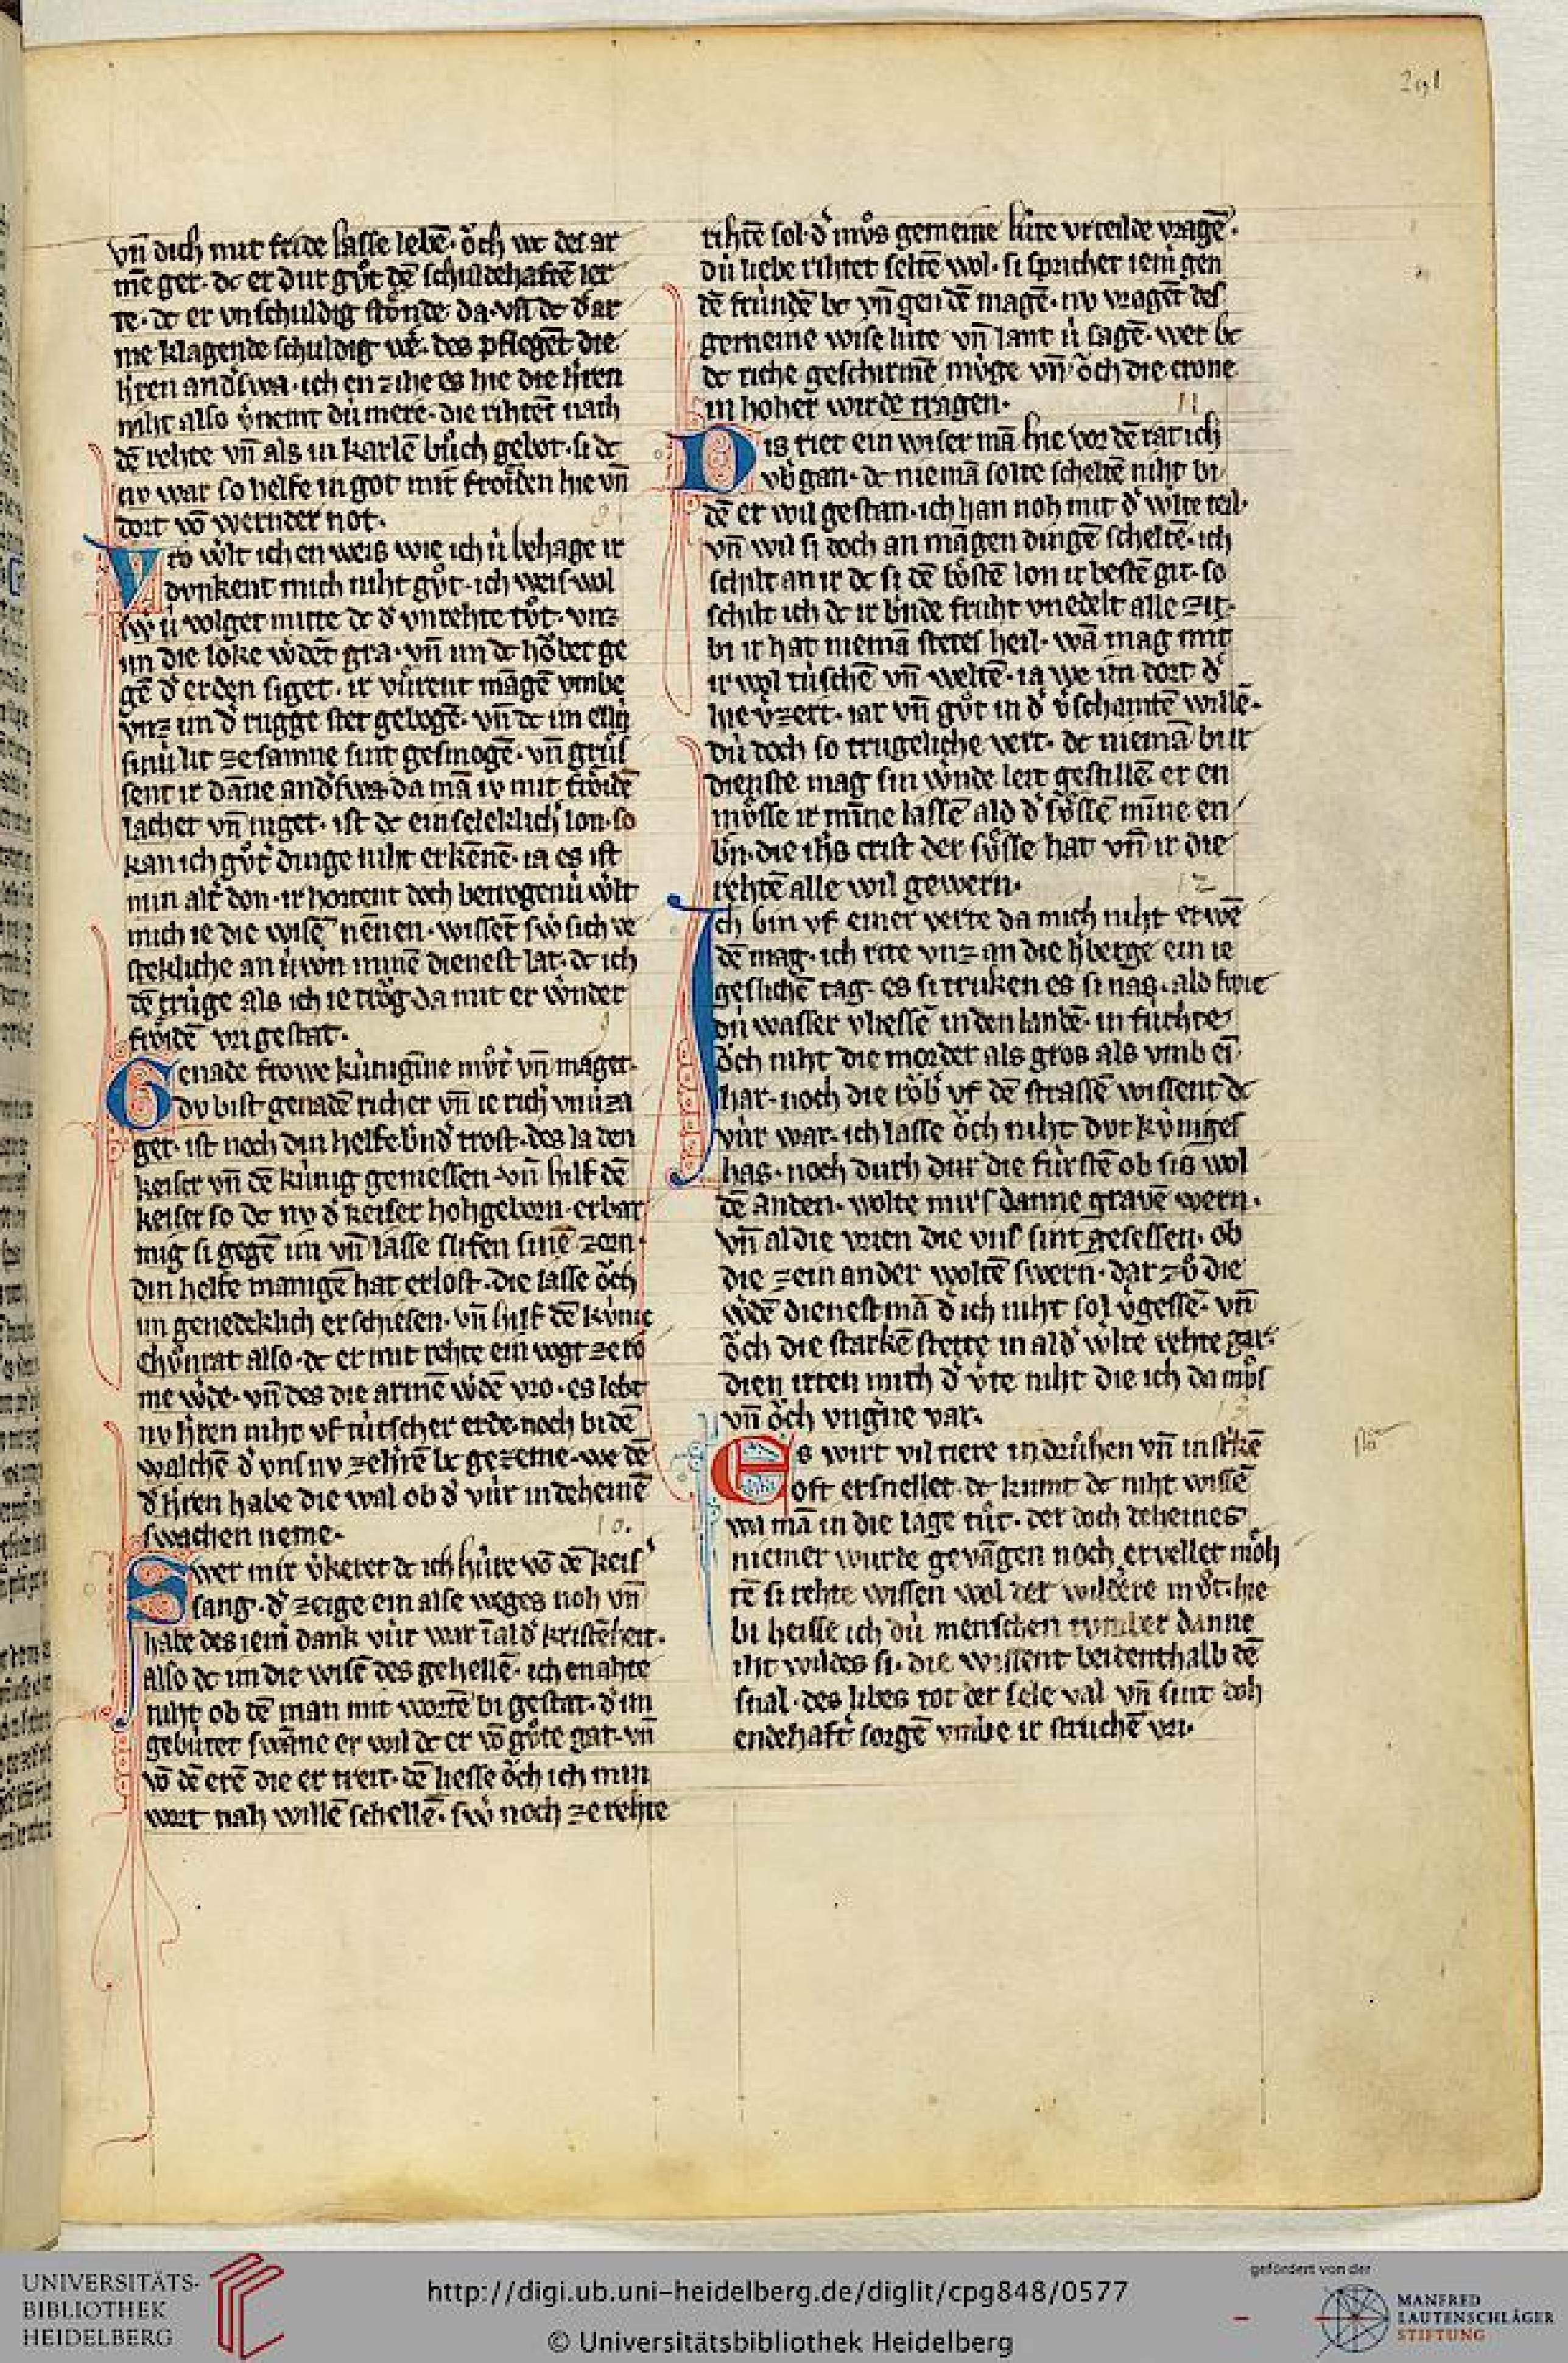 291
vn̄ dich mit fride lasse lebē. ǒch wc det ar
me ger. dc er dur gůt dē schuldehaftē ler
te. dc er vnschuldig stůnde da. vn̄ dc d' ar
me klagende schuldig wē. des pflegēt die
h'ren and'swa. ich en zihe es hie die h'ren
niht also v'nemt dú mere. die rihtēt nach
dē rehte vn̄ als in karlē bůch gebot. si dc
nv war so helfe in got mit frǒiden hie vn̄
dort vō wernder not.
Vro wlt ich en weis wie ich ú behage ir
dvnkent mich niht gůt. ich weis wol
sw ú volget mitte dc d' vnrehte tůt. vnz
im die loke wdēt gra. vn̄ im dc hǒbet ge
gē d' erden siget. ir vůrent māgē vmbe
vnz im d' rugge stet gebogē. vn̄ dc im ellú
sinú lit zesamne sint gesmogē. vn̄ grůs
sent ir dāne and'swa da mā iv mit frǒidē
lachet vn̄ niget. ist dc ein seleklich' lon. so
kan ich gůt' dinge niht erkēnē. ia es ist
min alt' don. ir hortent doch betrogenú wlt
mich ie die wisē nēnen. wissēt sw sich ve
stekliche an úwn minē dienest lat. dc ich
dē trúge als ich ie trǒg da mit er wnder
frǒidē vri gestat.
Genade frowe kúnigīne mǔt' vn̄ maget.
dv bist genadē richer vn̄ ie rich' vnúza
get. ist noch din helfe vnd' trost. des la den
keiser vn̄ dē kúnig geniessen. vn̄ hilf dē
keiser so dc nv d' keiser hohgeborn. erbar
mig si gegē im vn̄ lasse slifen sinē zorn.
din helfe manigē hat erlost. die lasse ǒch
im genedeklich erschiesen. vn̄ hilf dē kúnic
Chǔnrat also. dc er mit rehte ein vogt ze ro
me wde. vn̄ des die armē wdē vro. es lebt
nv h'ren niht vf tútscher erde. noch bi dē
walchē d' vns nv zeh'rē bc gezeme. we dē
d' h'ren habe die wal ob d' vúr in deheinē
swachen neme.
Swer mir v'keret dc ich húte vō dē keis'
sang. d' zeige ein alse weges noh vn̄
habe des iem' dank vúr war ī al d' kristēheit.
also dc im die wisē des gehellē. ich en ahte
niht ob dē man mit wortē bi gestat. d' im
gebútet swāne er wil dc er vō gůte gat. vn̄
vō dē erē die er treit. dē liesse ǒch ich min
wort nah willē schellē. sw noch ze rehte
rihtē sol. d' můs gemeine lúte vrteilde vragē.
dú liebe rihtet seltē wol. si sprichet iem' gen
dē frúndē bc vn̄ gen dē magē. nv vragēt des
gemeine wise lúte vn̄ lant ú sagē. wer bc
dc riche geschirmē múge vn̄ ǒch die crone
in hoher wirde tragen.
Dis riet ein wiser mā hie vor dē rat ich
vb'gan. dc niemā solte scheltē niht bi
dē er wil gestan. ich han noh mit d' wlte teil.
vn̄ wil si doch an māgen dingē scheltē. ich
schilt an ir dc si dē bǒstē lon ir bestē git. so
schilt ich dc ir b'nde fruht vnedelt alle zit.
bi ir hat niemā stetes heil. wā mag mit
ir wol túschē vn̄ weltē. ia we im dort d'
hie v'zert. iar vn̄ gůt in d' v'schamtē willē.
dú doch so trugeliche vert. dc niemā bi ir
dienste mag sin wnde leit gestillē. er en
můsse ir mīne lassē ald d' sůssē mīne en
b'n. die ih's crist der sůsse hat vn̄ ir die
rehtē alle wil gewern.
Ich bin vf einer verte da mich niht erwē
dē mag. ich rite vnz an die h'berge ein ie
geslichē tag. es si truken es si nas. ald swie
dú wasser vliessē in den landē. in fúrhte
ǒch niht die morder als gros als vmb ei
har. noch die rǒb' vf dē strassē wissent dc
vúr war. ich lasse ǒch niht dvr kúniges
has. noch durh dur die fúrstē ob sis wol
dē anden. wolte mirs danne gravē wern.
vn̄ al die vrien die vns sint gesessen. ob
die zein ander woltē swern. dar zů die
wdē dienestmā d' ich niht sol v'gessē. vn̄
ǒch die starkē stette in al d' wlte rehte gar.
dien irten mich d' v'te niht die ich da můs
vn̄ ǒch vngne var.
Es wirt vil tiere in drůhen vn̄ in strikē
oft ersnellet. dc kumt dc niht wissē
wa mā in die lage tůt. der doch deheines
niemer wurde gevāgen noch ervellet mǒh
tē si rehte wissen wol der wildere můt. hie
bi heisse ich dú menschen tvmber danne
iht wildes si. die wissent beidenthalb dē
snal. des libes tot der sele val vn̄ sint doh
endehaft' sorgē vmbe ir struchē vri.
9
10.
11
12
UNIVERSITÄTS-
BIBLIOTHEK
HEIDELBERG
http://digi.ub.uni-heidelberg.de/diglit/cpg848/0577
© Universitätsbibliothek Heidelberg
gefördert von der
MANFRED
LAUTENSCHLÄGER
STIFTUNG